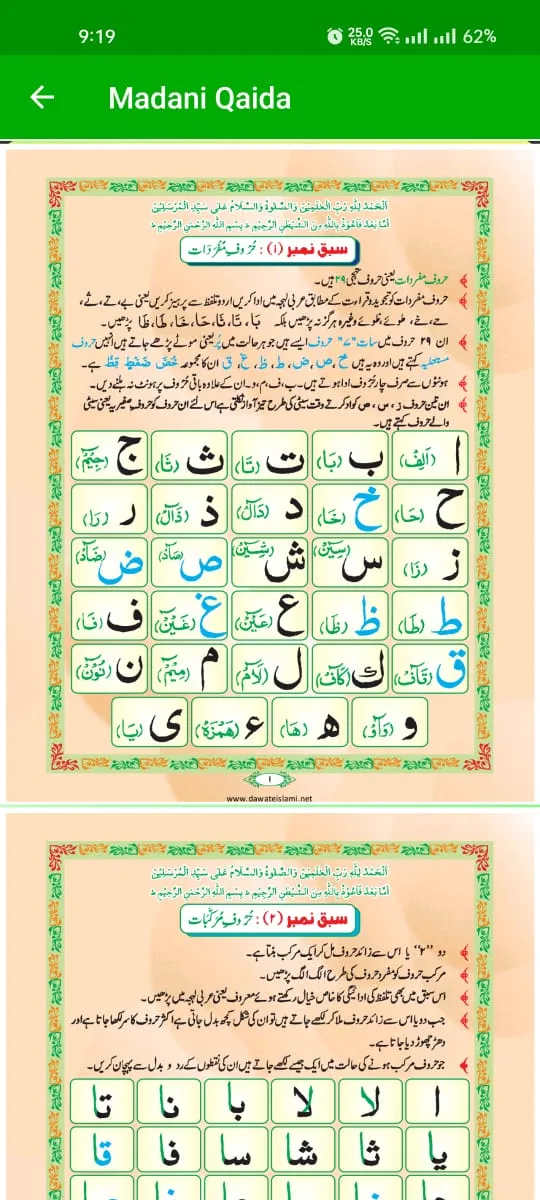 9:19
25.0 KB/S
62%
Madani Qaida
اَلْحَمْدُ لِلّٰهِ رَبِّ الْعٰلَمِیْنَ وَالصَّلٰوةُ وَالسَّلَامُ عَلٰی سَیِّدِ الْمُرْسَلِیْنَ
اَمَّا بَعْدُ فَاَعُوْذُ بِاللّٰهِ مِنَ الشَّیْطٰنِ الرَّجِیْمِ ط بِسْمِ اللّٰهِ الرَّحْمٰنِ الرَّحِیْمِ ط
سبق نمبر (۱) : حُرُوفِ مُفْرَدَات
حروفِ مفردات یعنی حروفِ تہجی ۲۹ ہیں۔
حروفِ مفردات کو تجوید و قراءت کے مطابق عربی لہجہ میں ادا کریں اردو تلفظ سے پرہیز کریں یعنی بے، تے، ثے،
حے، خے، طوئے، ظوئے وغیرہ ہرگز نہ پڑھیں بلکہ بَا، تَا، ثَا، حَا، خَا، طَا، ظَا پڑھیں۔
ان ۲۹ حروف میں سات "۷" حروف ایسے ہیں جو ہر حالت میں پُر یعنی موٹے پڑھے جاتے ہیں انہیں حروفِ
مستعلیہ کہتے ہیں اور وہ یہ ہیں خ، ص، ض، ط، ظ، غ، ق ان کا مجموعہ خُصَّ ضَغْطٍ قِظْ ہے۔
ہونٹوں سے صرف چار حُروف ادا ہوتے ہیں۔ ب، ف، م، و۔ ان کے علاوہ باقی حُروف پر ہونٹ نہ ہلنے دیں۔
ان تین حروف ز، س، ص کو ادا کرتے وقت سیٹی کی طرح تیز آواز نکلتی ہے اس لئے ان حروف کو حروفِ صفیریہ یعنی سیٹی
والے حروف کہتے ہیں۔
ا (اَلِفْ) ب (بَا) ت (تَا) ث (ثَا) ج (جِیْمْ)
ح (حَا) خ (خَا) د (دَالْ) ذ (ذَالْ) ر (رَا)
ز (زَا) س (سِیْنْ) ش (شِیْنْ) ص (صَادْ) ض (ضَادْ)
ط (طَا) ظ (ظَا) ع (عَیْنْ) غ (غَیْنْ) ف (فَا)
ق (قَافْ) ك (كَافْ) ل (لَامْ) م (مِیْمْ) ن (نُوْنْ)
و (وَاوْ) ھ (ھَا) ء (ھَمْزَهْ) ی (یَا)
۱
www.dawateislami.net
اَلْحَمْدُ لِلّٰهِ رَبِّ الْعٰلَمِیْنَ وَالصَّلٰوةُ وَالسَّلَامُ عَلٰی سَیِّدِ الْمُرْسَلِیْنَ
اَمَّا بَعْدُ فَاَعُوْذُ بِاللّٰهِ مِنَ الشَّیْطٰنِ الرَّجِیْمِ ط بِسْمِ اللّٰهِ الرَّحْمٰنِ الرَّحِیْمِ ط
سبق نمبر (۲) : حُرُوفِ مُرَکَّبَات
دو "۲" یا اس سے زائد حروف مل کر ایک مرکب بنتا ہے۔
مرکب حروف کو مفرد حروف کی طرح الگ الگ پڑھیں۔
اس سبق میں بھی تلفظ کی ادائیگی کا خاص خیال رکھتے ہوئے معروف یعنی عربی لہجہ میں پڑھیں۔
جب دو یا اس سے زائد حروف ملا کر لکھے جاتے ہیں تو ان کی شکل کچھ بدل جاتی ہے اکثر حروف کا سر لکھا جاتا ہے اور
دھڑ چھوڑ دیا جاتا ہے۔
جو حروف مرکب ہونے کی حالت میں ایک جیسے لکھے جاتے ہیں ان کی نقطوں کے رد و بدل سے پہچان کریں۔
ا لا لا با نا تا
یا ثا شا سا فا قا